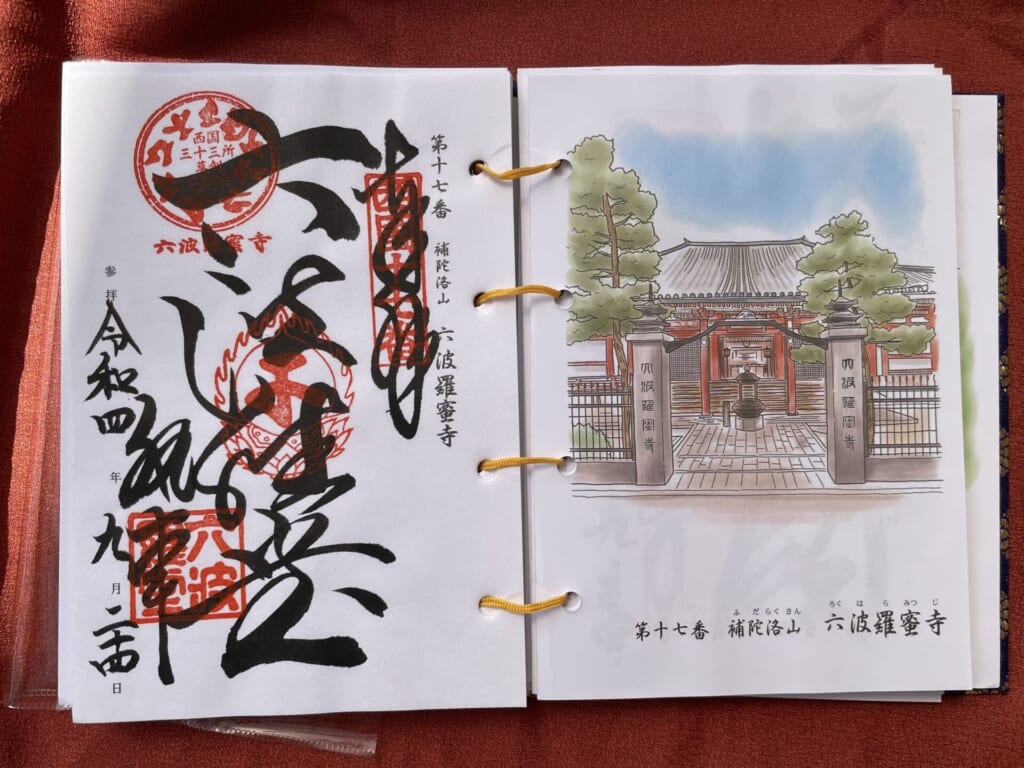 第十七番 補陀洛山 六波羅蜜寺
奉拝
西国十七番
西国
三十三所
草創
六波羅蜜寺
六波羅堂
参拝 令和四年九月二十四日
六波羅蜜寺
六波羅蜜寺
ふだらくさん ろくはらみつじ
第十七番 補陀洛山 六波羅蜜寺